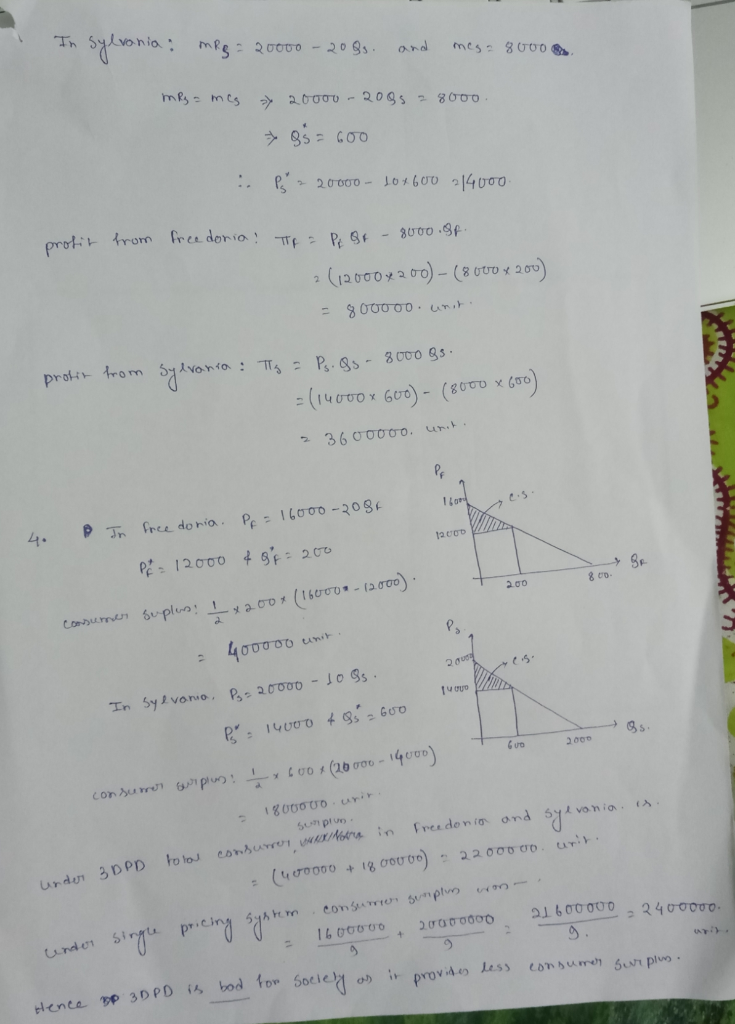 In Sylvania: MRs = 20000 - 20Qs. and mcs = 8000
MRs = mcs ⇒ 20000 - 20Qs = 8000.
⇒ Qs* = 600
∴ Ps* = 20000 - 10×600 = 14000.
profit from freedonia: πf = Pf Qf - 8000.Qf.
= (12000×200) - (8000×200)
= 800000. unit.
profit from Sylvania: πs = Ps.Qs - 8000Qs.
= (14000×600) - (8000×600)
= 3600000. unit.
4. In freedonia. Pf = 16000 - 20Qf
Pf* = 12000 & Qf* = 200
consumer suplus: 1/2 × 200 × (16000 - 12000).
= 400000 unit.
Pf
16000
c.s.
12000
200
800.
Qf
In Sylvania. Ps = 20000 - 10Qs.
Ps* = 14000 & Qs* = 600
consumer surplus: 1/2 × 600 × (20000 - 14000)
= 1800000. unit.
Ps.
20000
c.s.
14000
600
2000
Qs.
surplus.
under 3DPD total consumer in freedonia and sylvania. is.
= (400000 + 1800000) = 2200000. unit.
under single pricing system. consumer surplus was -
= 1600000/9 + 20000000/9 = 21600000/9. = 2400000. unit.
Hence 3DPD is bad for society as it provides less consumer surplus.